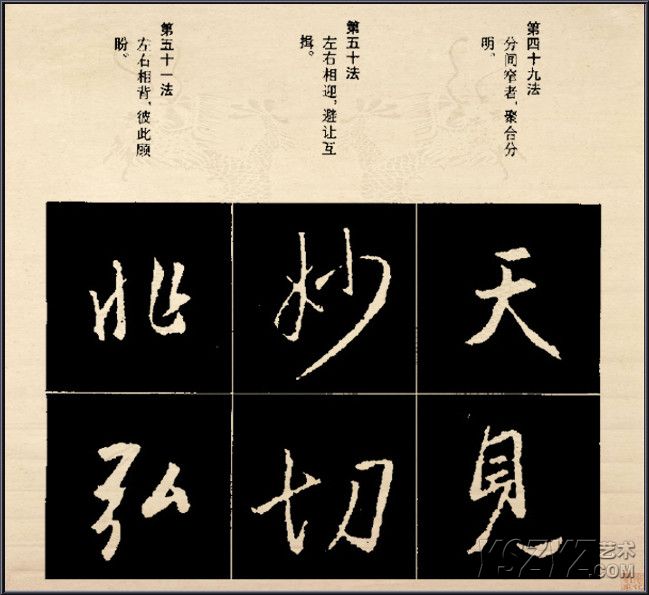 第四十九法
分间窄者，聚合分
明。
第五十法
左右相迎，避让互
揖。
第五十一法
左右相背，彼此顾
盼。
天
见
妙
切
非
弘
YSZYZ艺术
.COM